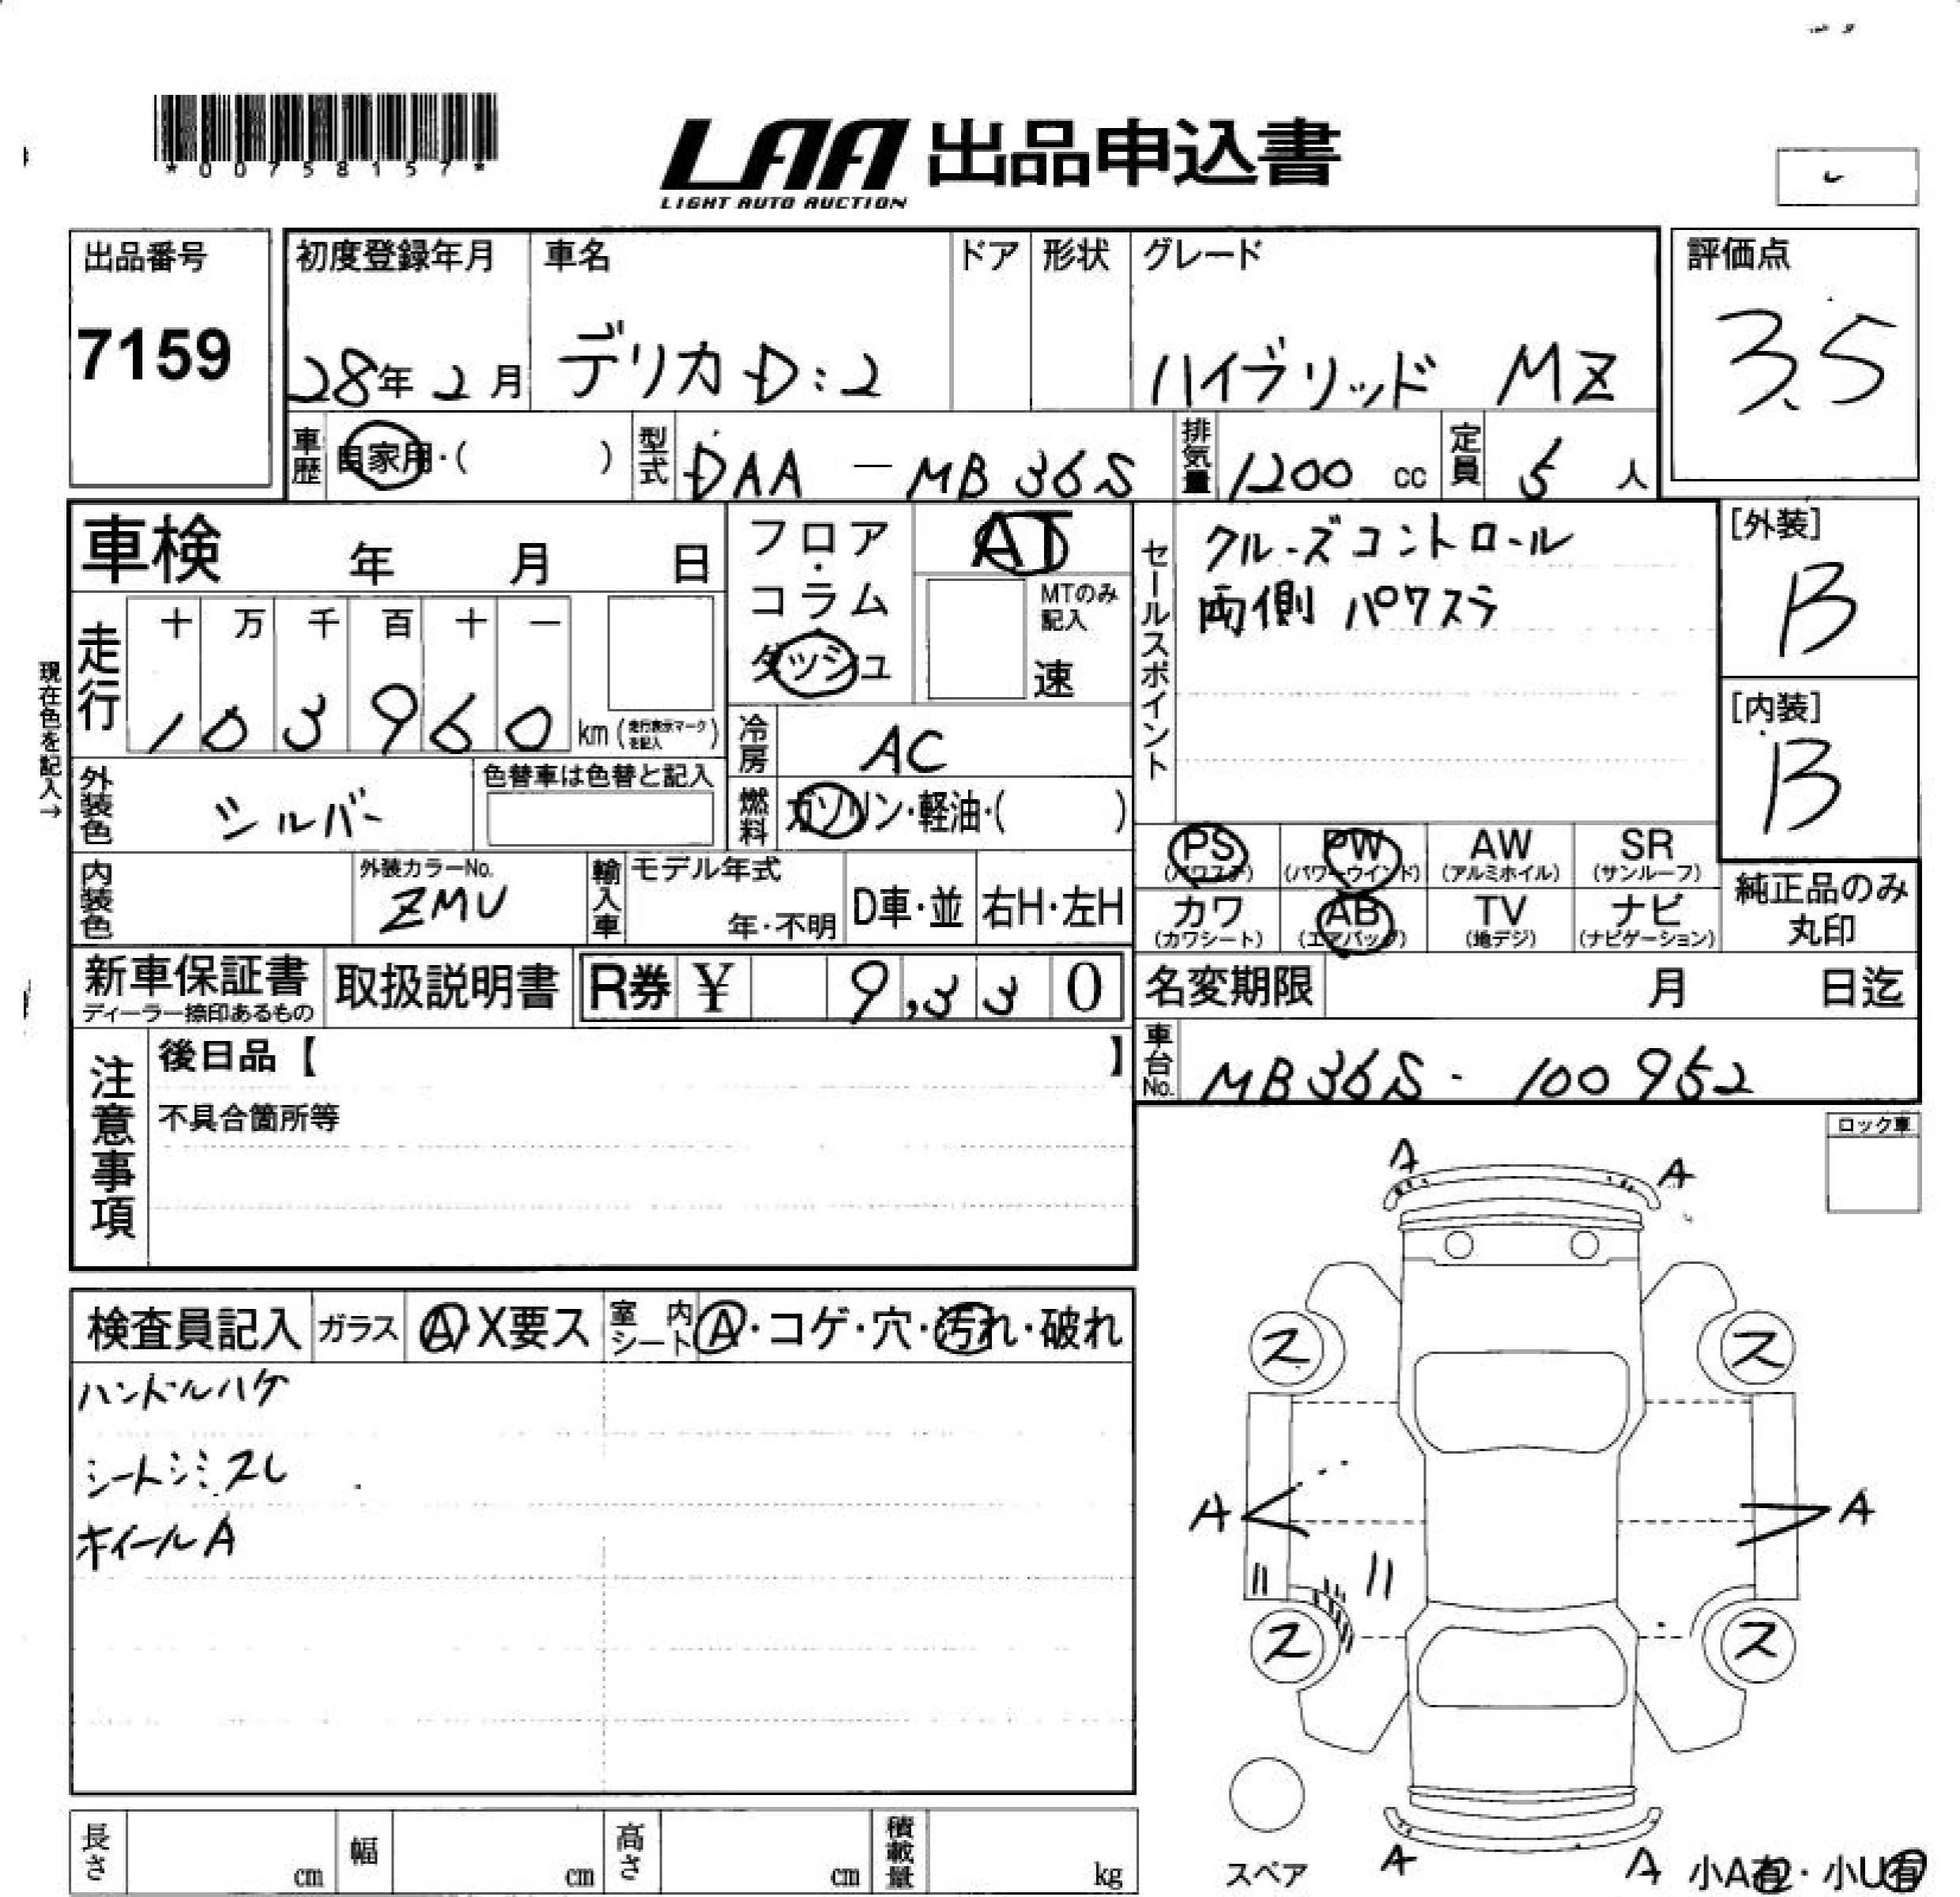 *00758157*
LAA 出品申込書
LIGHT AUTO AUCTION
出品番号
7159
初度登録年月
28年 2月
車名
デリカ D:2
ドア
形状
グレード
ハイブリッド MZ
評価点
3.5
車歴
自家用・( )
型式
DAA - MB36S
排気量
1200 cc
定員
5 人
車検 年 月 日
フロア・コラム
ダッシュ
AT
MTのみ記入
速
セールスポイント
クルーズコントロール
両側 パワスラ
[外装]
B
[内装]
B
現在色を記入→
走行
十 万 千 百 十 一
1 0 3 9 6 0 km (走行表示マークを記入)
冷房
AC
外装色
シルバー
色替車は色替と記入
燃料
ガソリン・軽油・( )
PS (パワステ)
PW (パワーウインド)
AW (アルミホイル)
SR (サンルーフ)
内装色
外装カラーNo.
ZMU
輸入車
モデル年式
年・不明
D車・並
右H・左H
カワ (カワシート)
AB (エアバッグ)
TV (地デジ)
ナビ (ナビゲーション)
純正品のみ
丸印
新車保証書
ディーラー捺印あるもの
取扱説明書
R券 ¥ 9,330
名変期限 月 日迄
車台No.
MB36S - 100952
注意事項
後日品【 】
不具合箇所等
ロック車
検査員記入
ガラス
A・X要ス
室内シート
A・コゲ・穴・汚れ・破れ
ハンドルハゲ
シートシミスレ
ホイールA
A
A
ス
ス
A
A
ス
ス
A
A
スペア
小A有・小U有
長さ cm
幅 cm
高さ cm
積載量 kg